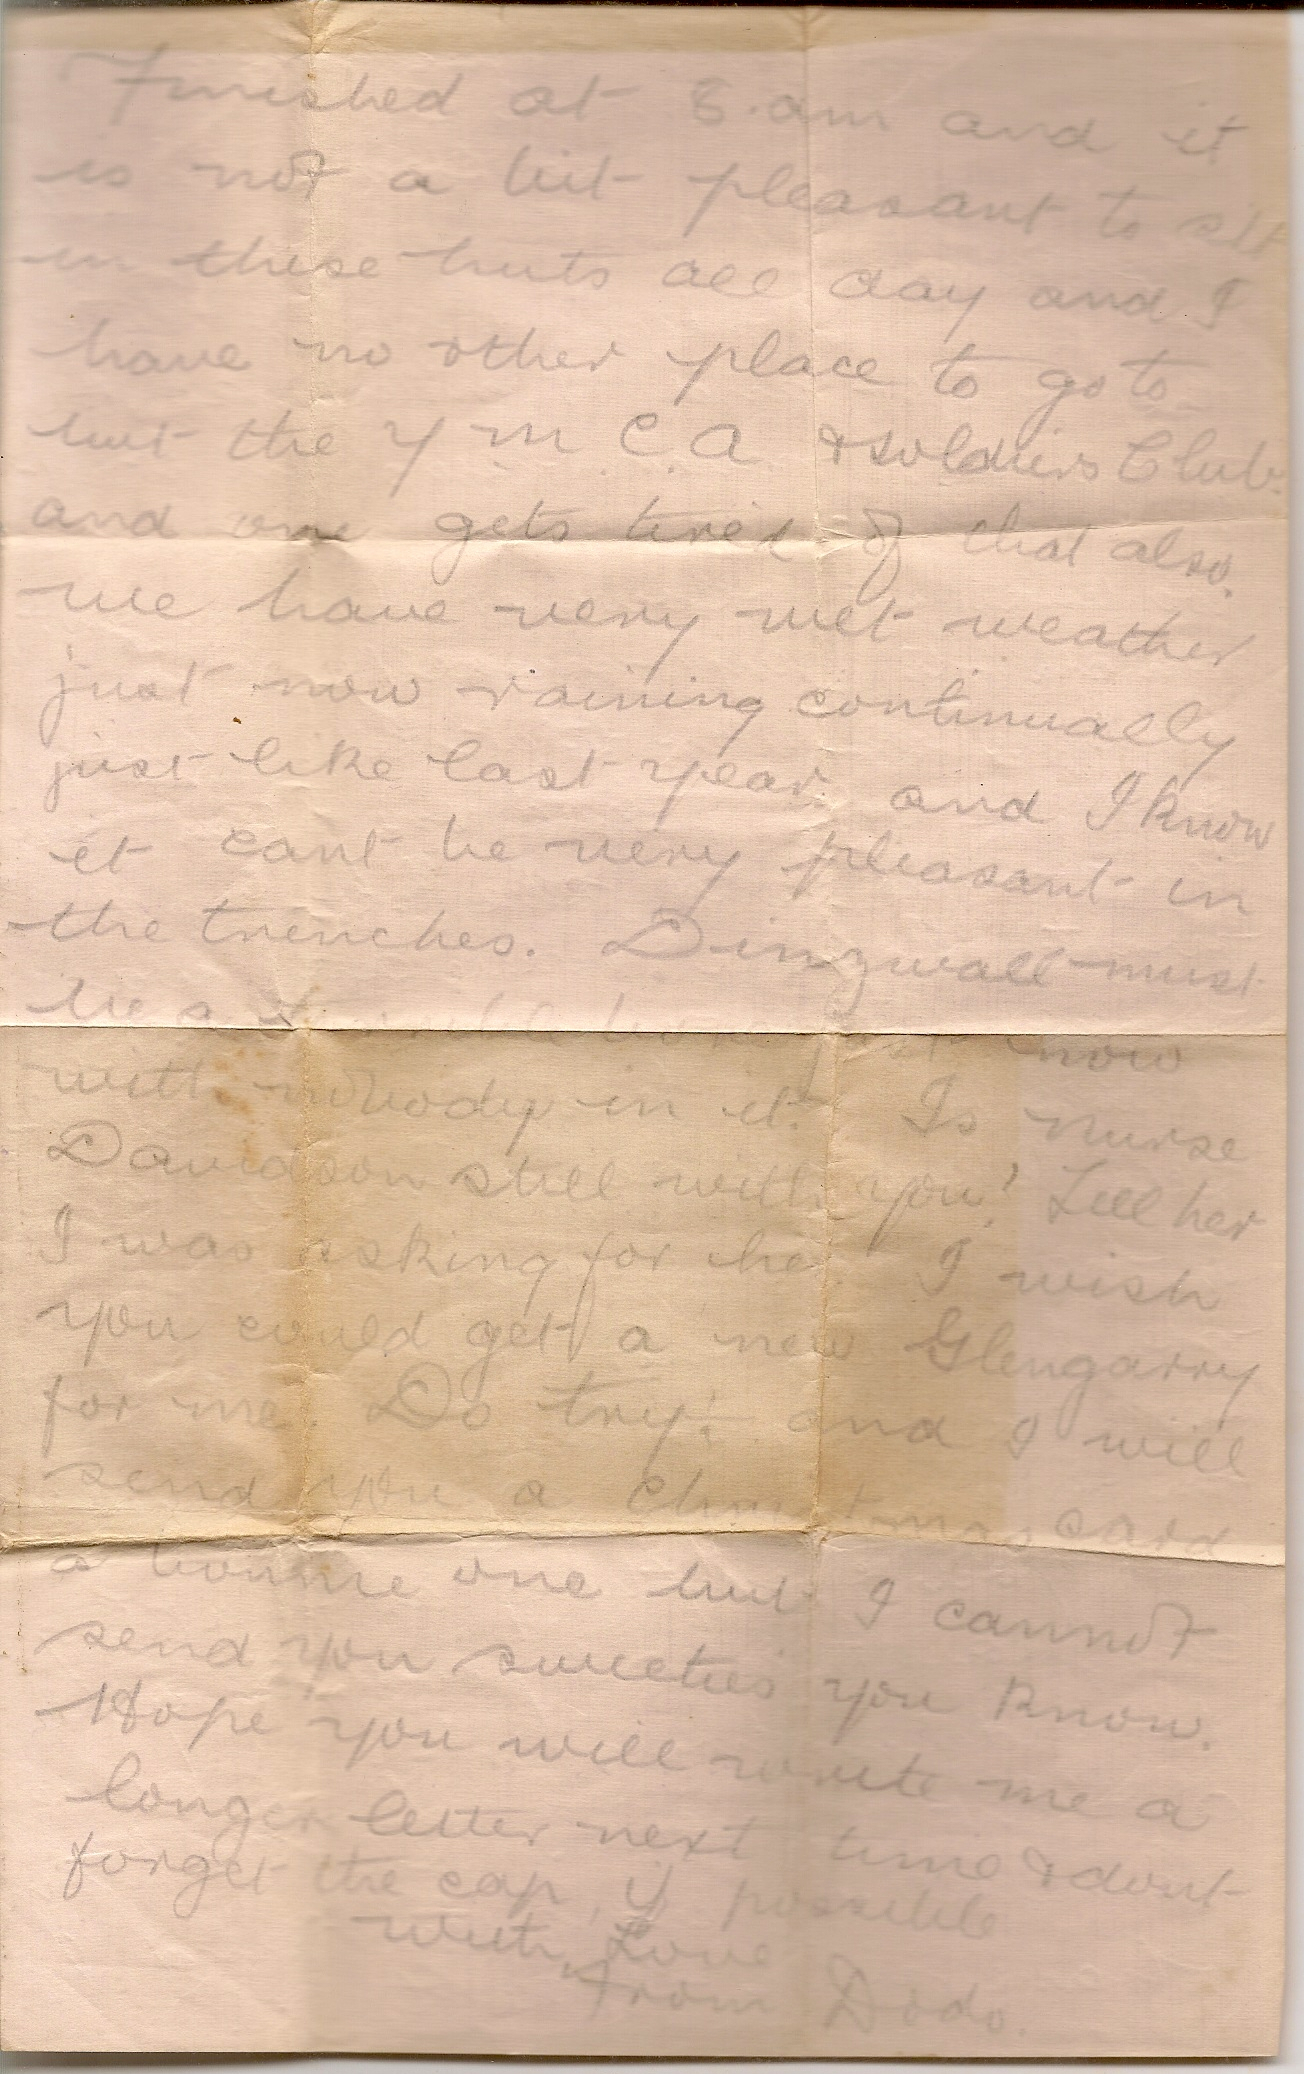 Finished at 8.am and it
is not a bit pleasant to sit
in these huts all day and I
have no other place to go to
but the Y M.C.A & soldiers Club.
and one gets tired of that also.
we have very wet weather
just now raining continually
just like last year and I know
it cant be very pleasant in
the trenches. Dingwall must
be a just now
with nobody in it. Is nurse
Davidson still with you? Tell her
I was asking for her. I wish
you could get a new Glengarry
for me. Do try! and I will
send you a Christmas card
a bonnie one but I cannot
send you sweeties you know.
Hope you will write me a
longer letter next time & dont
forget the cap, if possible
with Love
from Dodo.